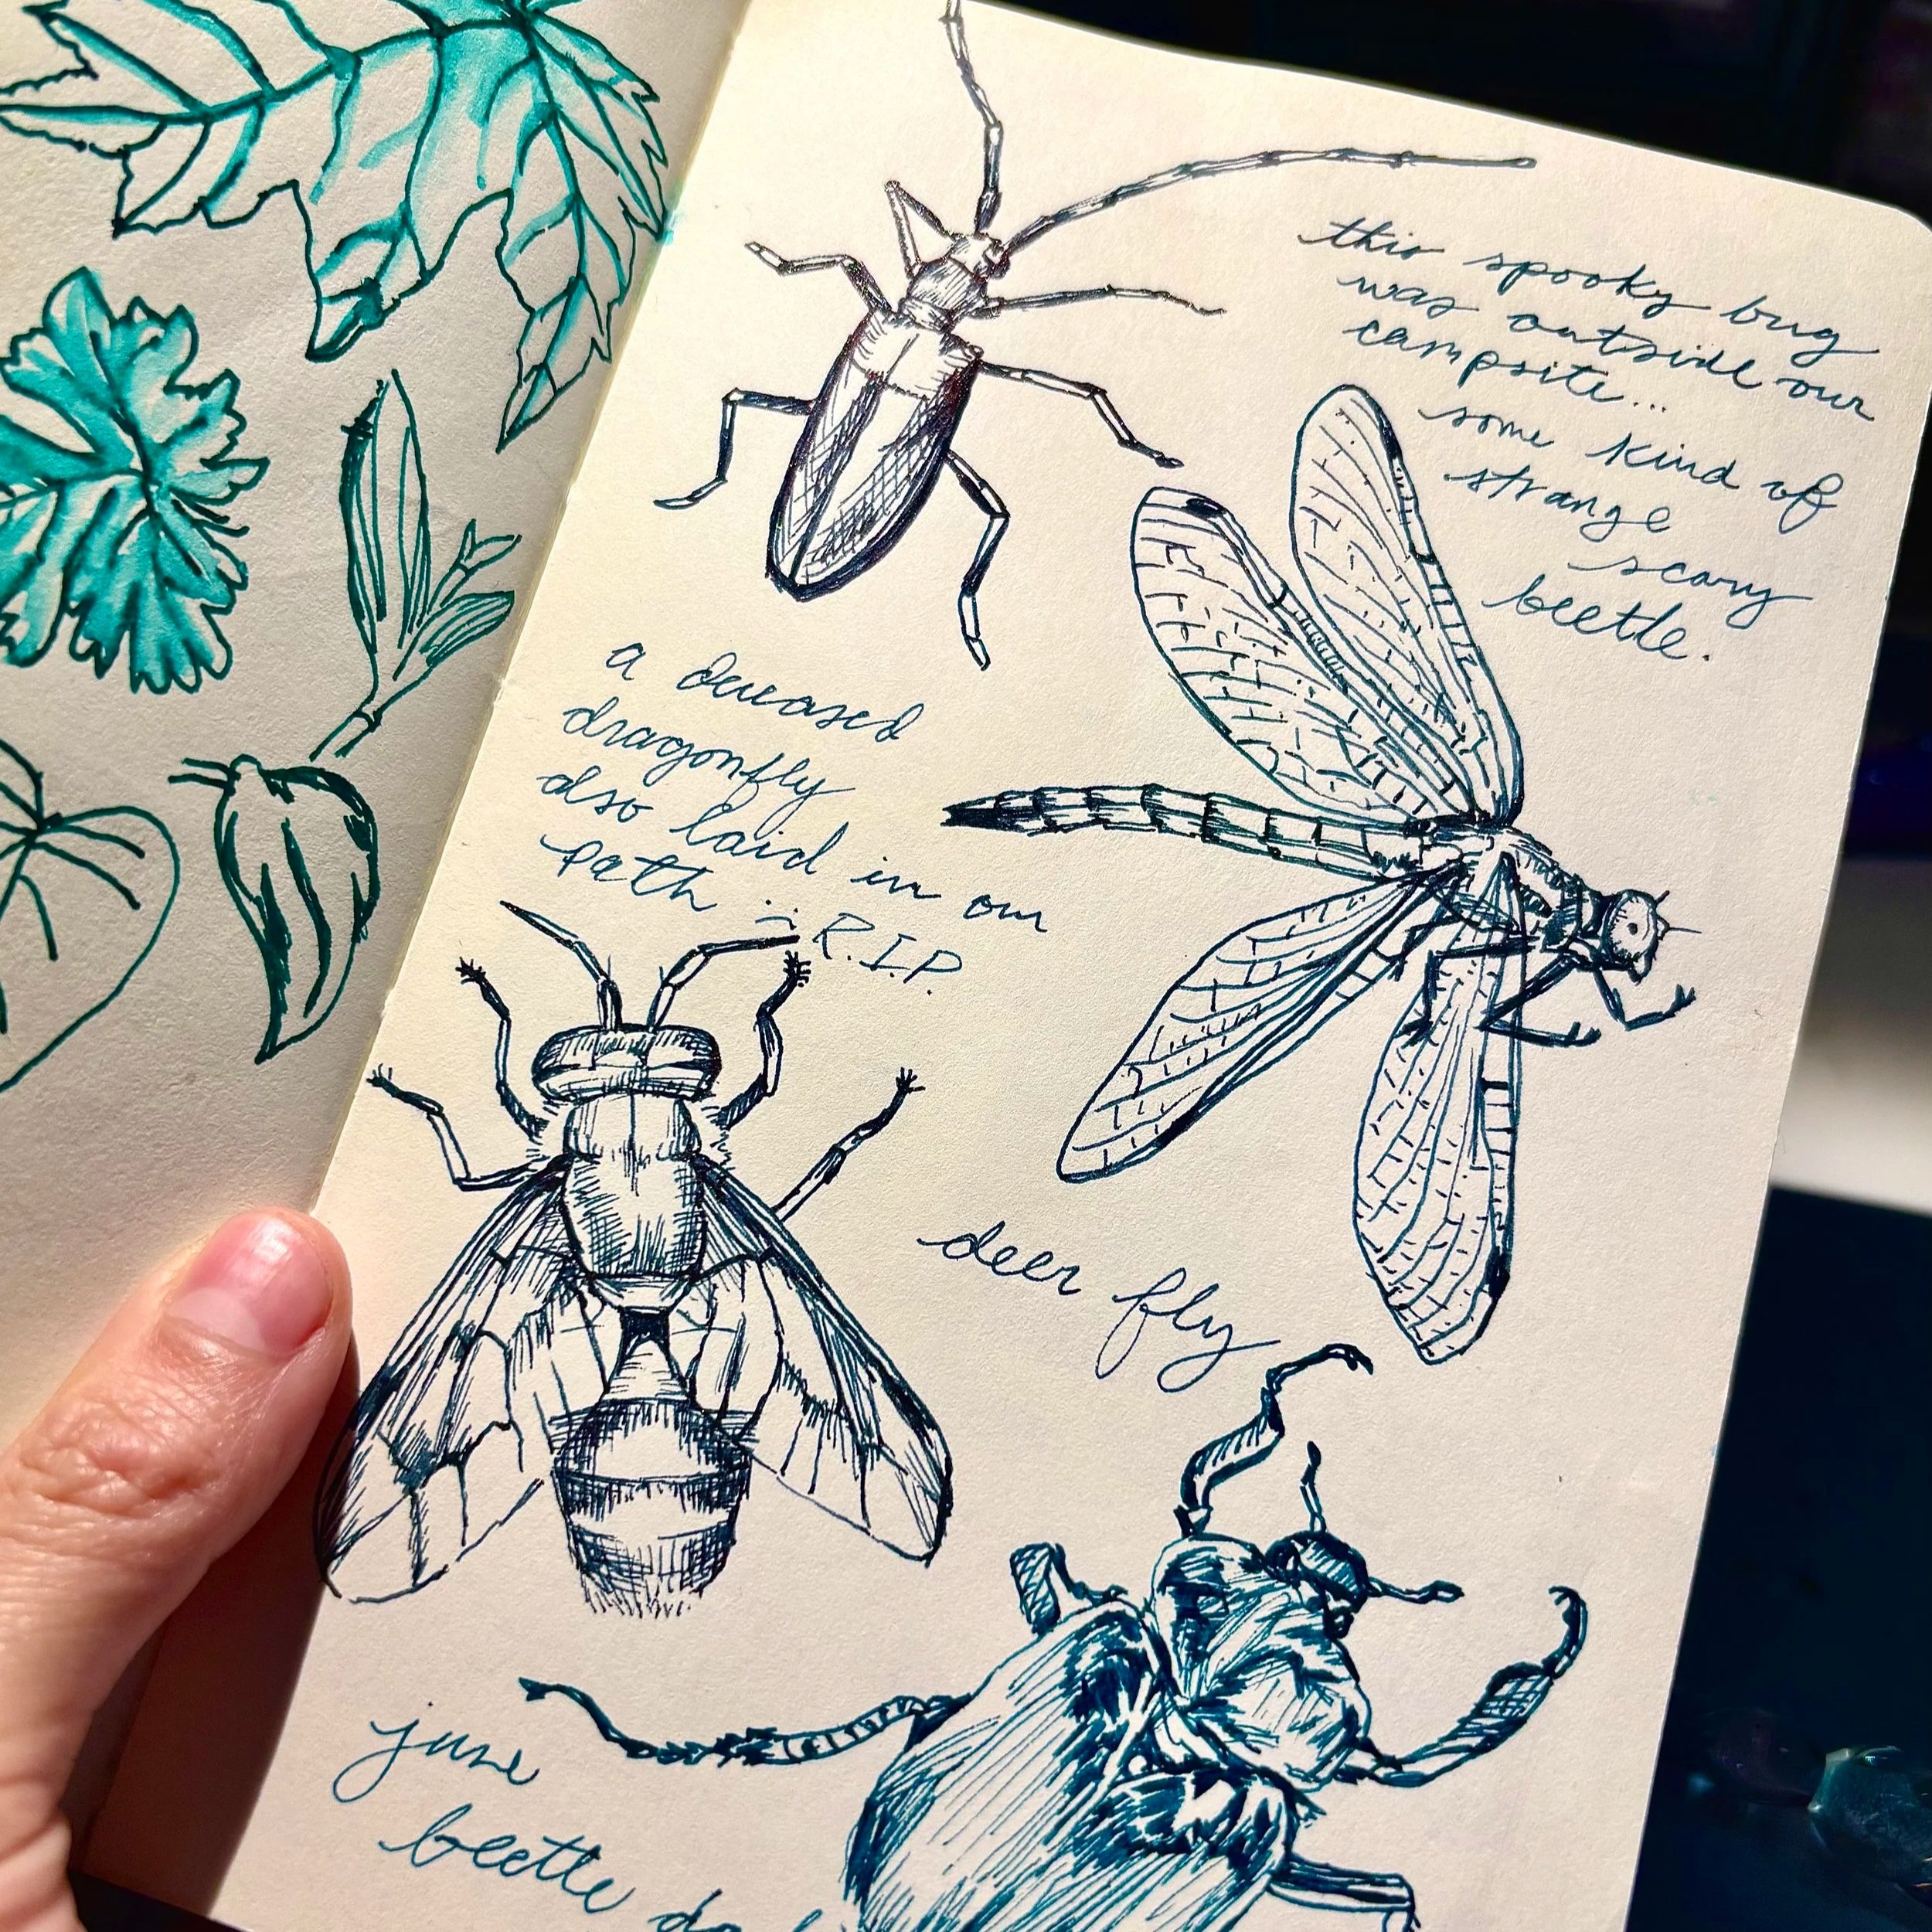 this spooky bug
was outside our
campsite...
some kind of
strange
scary
beetle.
a deceased
dragonfly
also laid in our
path :( R.I.P.
deer fly
june
beetle